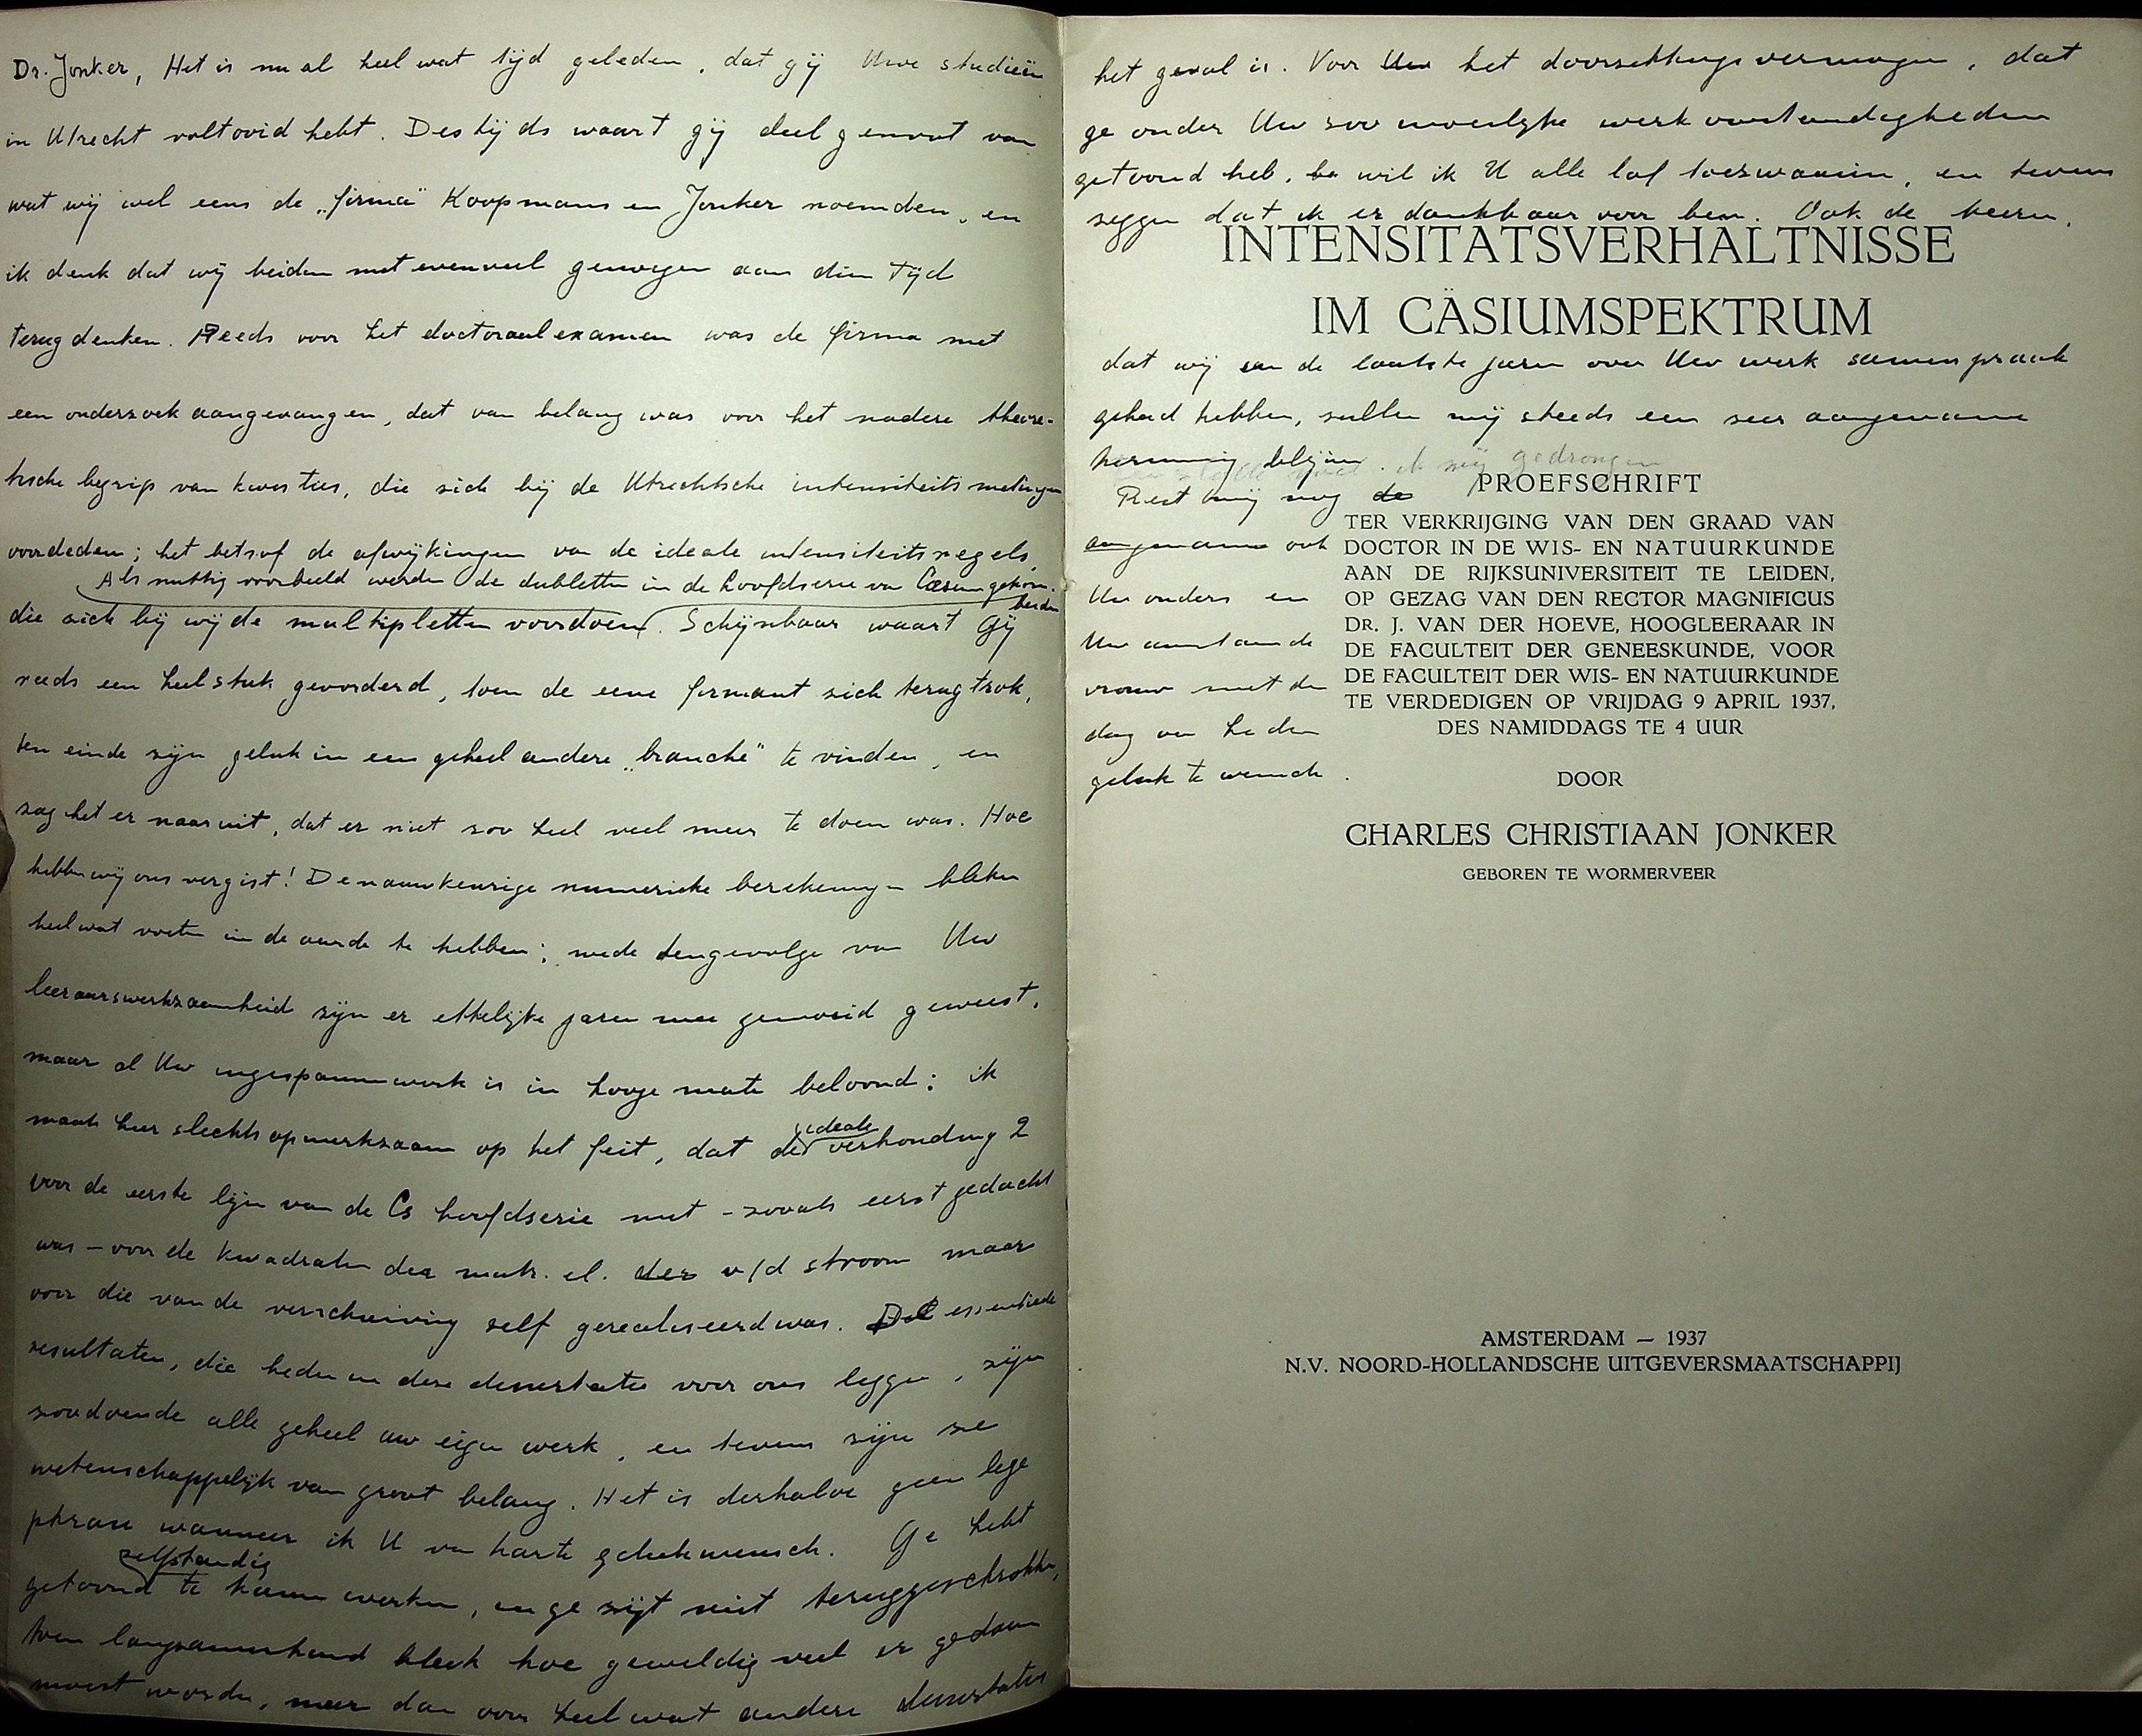 Dr. Jonker, Het is nu al heel wat tijd geleden, dat gij Uwe studieën
in Utrecht voltooid hebt. Destijds waart gij deelgenoot van
wat wij wel eens de „firma" Koopmans en Jonker noemden, en
ik denk dat wij beiden met evenveel genoegen aan dien tijd
terugdenken. Reeds voor het doctoraalexamen was de firma met
een onderzoek aangevangen, dat van belang was voor het nadere theore-
tische begrip van kwesties, die zich bij de Utrechtsche intensiteitsmetingen
voordeden; het betrof de afwijkingen van de ideale intensiteitsregels,
Als nuttig voorbeeld werden de dubletten in de hoofdserie van Caesium gekozen.
die zich bij wijde multipletten voordoen. Schijnbaar waart Gij beiden
reeds een heel stuk gevorderd, toen de eene firmant zich terugtrok,
ten einde zijn geluk in een geheel andere „branche" te vinden, en
zag het er naar uit, dat er niet zoo heel veel meer te doen was. Hoe
hebben wij ons vergist! De nauwkeurige numerieke berekeningen bleken
heel wat voeten in de aarde te hebben; mede tengevolge van Uw
leeraarswerkzaamheid zijn er ettelijke jaren mee gemoeid geweest,
maar al Uw ingespannen werk is in hooge mate beloond: ik
maak hier slechts opmerkzaam op het feit, dat de ideale verhouding 2
voor de eerste lijn van de Cs hoofdserie niet – zooals eerst gedacht
was – voor de kwadraten der matr. el. der v/d stroom maar
voor die van de verschuiving zelf gerealiseerd was. De essentieele
resultaten, die heden in deze dissertatie voor ons liggen, zijn
zoodoende alle geheel uw eigen werk, en tevens zijn ze
wetenschappelijk van groot belang. Het is derhalve geen lege
phrase wanneer ik U van harte gelukwensch. Ge hebt
getoond zelfstandig te kunnen werken, en ge zijt niet teruggeschrokken,
toen langzamerhand bleek hoe geweldig veel er gedaan
moest worden, meer dan voor heel wat andere dissertaties
het geval is. Voor Uw het doorzettingsvermogen, dat
ge onder Uw zoo moeilijke werkomstandigheden
getoond heb, wil ik U alle lof toezwaaien, en tevens
zeggen dat ik er dankbaar voor ben. Ook de keeren,
INTENSITÄTSVERHÄLTNISSE
IM CÄSIUMSPEKTRUM
dat wij in de laatste jaren over Uw werk samenspraak
gehad hebben, zullen mij steeds een zeer aangename
herinnering blijven.
ik mij gedrongen
Rest mij nog de
PROEFSCHRIFT
aangename ook
Uw ouders en
Uw aanstaande
vrouw met den
dag van heden
geluk te wenschen.
TER VERKRIJGING VAN DEN GRAAD VAN
DOCTOR IN DE WIS- EN NATUURKUNDE
AAN DE RIJKSUNIVERSITEIT TE LEIDEN,
OP GEZAG VAN DEN RECTOR MAGNIFICUS
DR. J. VAN DER HOEVE, HOOGLEERAAR IN
DE FACULTEIT DER GENEESKUNDE, VOOR
DE FACULTEIT DER WIS- EN NATUURKUNDE
TE VERDEDIGEN OP VRIJDAG 9 APRIL 1937,
DES NAMIDDAGS TE 4 UUR
DOOR
CHARLES CHRISTIAAN JONKER
GEBOREN TE WORMERVEER
AMSTERDAM — 1937
N.V. NOORD-HOLLANDSCHE UITGEVERSMAATSCHAPPIJ